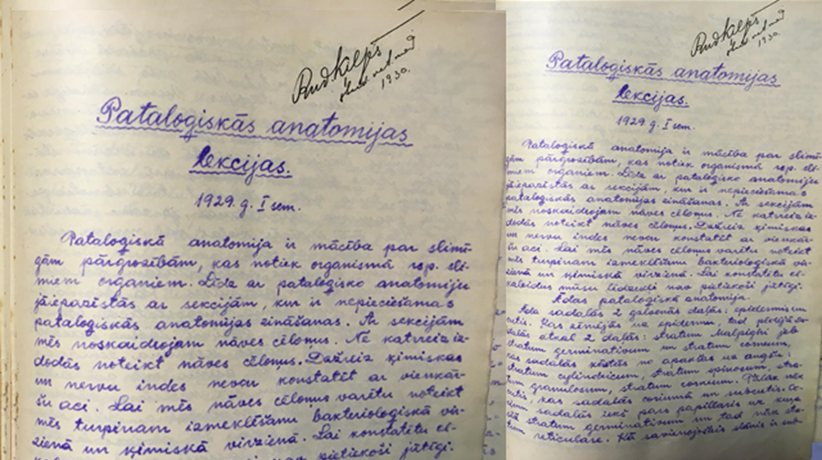 1930.
Pataloģiskās anatomijas
lekcijas.
1929. g. I sem.
Pataloģiskā anatomija ir mācība par slimī-
gām pārgrozībām, kas notiek organismā resp. slī-
miem organiem. Līdz ar patalogisko anatomiju
jāiepazīstās ar sekcijām, kur ir nepieciešamas
pataloģiskās anatomijas zināšanas. Ar sekcijām
mēs noskaidrojam nāves cēloņus. Ne katreiz iz-
dodās noteikt nāves cēloņus. Dažreiz ķīmiskas
un nervu indes nevar konstatēt ar vienkār-
šu aci. Lai mēs nāves cēloņus varētu noteikt
mēs turpinam izmeklēšanu bakterioloģiskā vir-
zienā un ķīmiskā virzienā. Lai konstatētu
pietiekoši jūtīgi.
1930.
Pataloģiskās anatomijas
lekcijas.
1929. g. I sem.
Pataloģiskā anatomija ir mācība par slimī-
gām pārgrozībām, kas notiek organismā resp. slī-
miem organiem. Līdz ar patalogisko anatomiju
jāiepazīstās ar sekcijām, kur ir nepieciešamas
pataloģiskās anatomijas zināšanas. Ar sekcijām
mēs noskaidrojam nāves cēloņus. Ne katreiz iz-
dodās noteikt nāves cēloņus. Dažreiz ķīmiskas
un nervu indes nevar konstatēt ar vienkār-
šu aci. Lai mēs nāves cēloņus varētu noteikt
mēs turpinam izmeklēšanu bakterioloģiskā vir-
zienā un ķīmiskā virzienā. Lai konstatētu
mūsu līdzekļi nav pietiekoši jūtīgi.
Ādas pataloģiskā anatomija.
Āda sadalās 2 galvenās daļās: epidermis un
cutis. Kas zīmējās uz epidermi, tad
atkal 2 daļās: stratum Malpighi jeb
stratum germinativum un stratum corneum,
kas sadalās kārtās no apakšas uz augšu:
stratum cylindricum, stratum spinosum, stra-
tum granulosum, stratum corneum. Tālāk nāk
cutis, kas sadalās corium un subcutis.
sadalās pars papillaris
stratum germinativum un tad nāk stra-
tum reticulare.